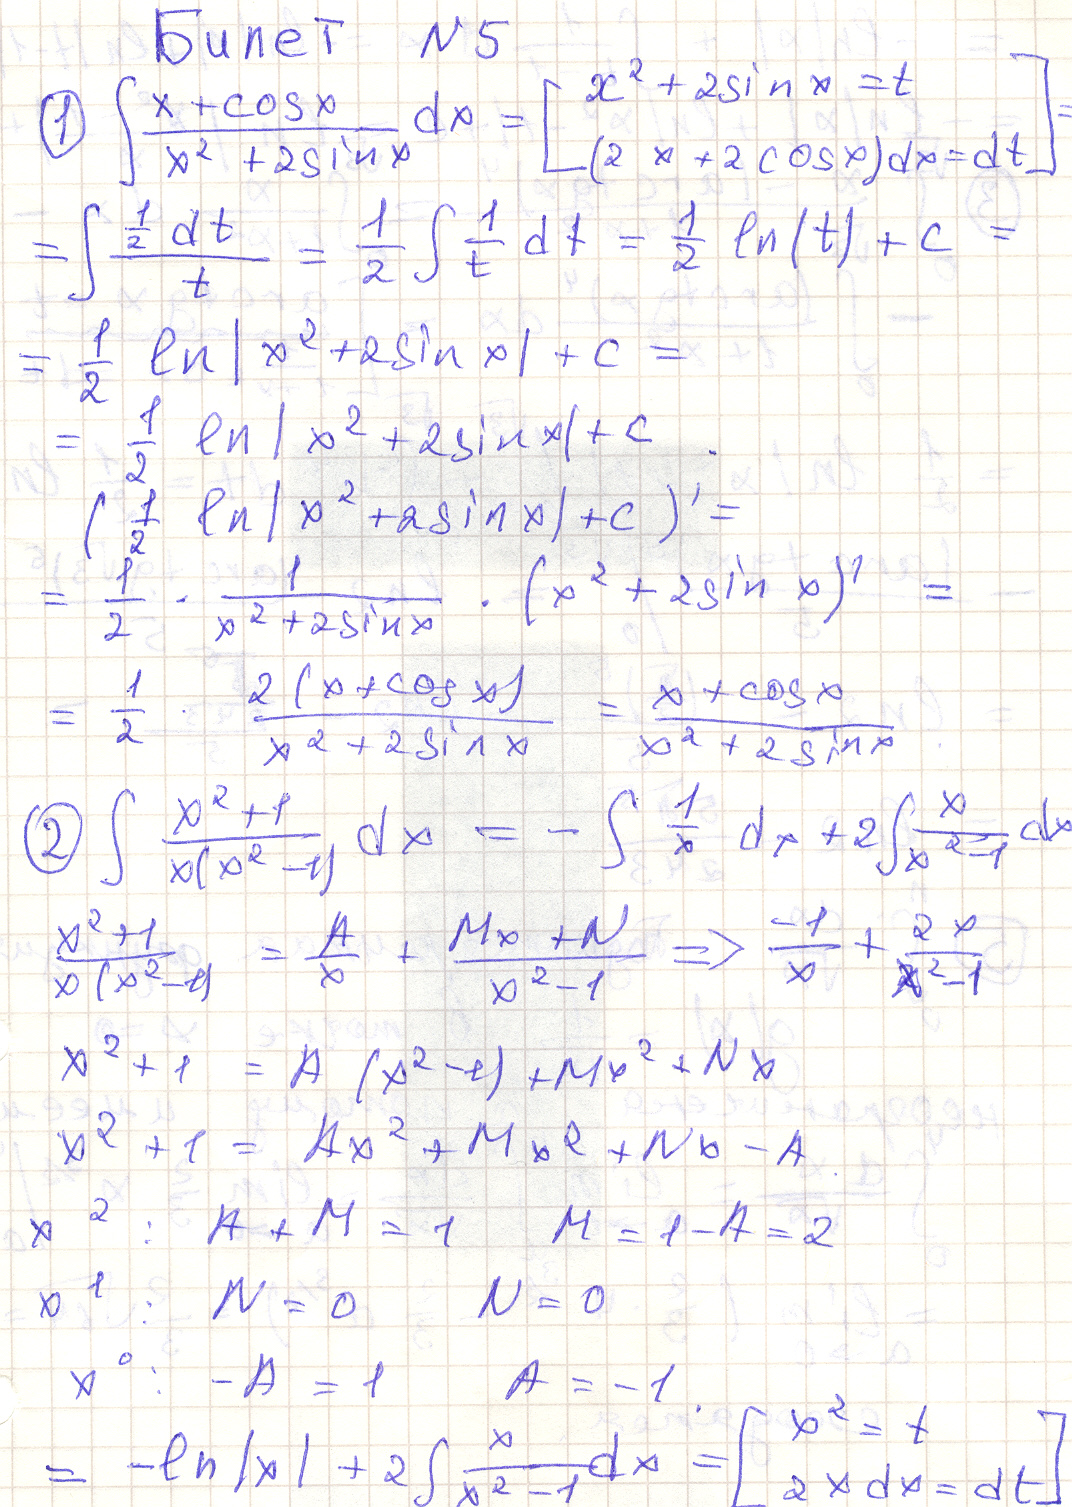 Билет N5
① ∫ (x+cosx)/(x²+2sinx) dx = [x²+2sinx=t
(2x+2cosx)dx=dt] =
= ∫ (½dt)/t = 1/2 ∫ 1/t dt = 1/2 ln(t)+c =
= 1/2 ln|x²+2sinx|+c =
= 1/2 ln|x²+2sinx|+c.
(1/2 ln|x²+2sinx|+c)' =
= 1/2 · 1/(x²+2sinx) · (x²+2sinx)' =
= 1/2 · 2(x+cosx)/(x²+2sinx) = (x+cosx)/(x²+2sinx).
② ∫ (x²+1)/(x(x²-1)) dx = -∫ 1/x dx + 2∫ x/(x²-1) dx
(x²+1)/(x(x²-1)) = A/x + (Mx+N)/(x²-1) => -1/x + 2x/(x²-1)
x²+1 = A(x²-1)+Mx²+Nx
x²+1 = Ax²+Mx²+Nx-A.
x²: A+M=1 M=1-A=2
x¹: N=0 N=0
x⁰: -A=1 A=-1.
= -ln|x| + 2∫ x/(x²-1) dx = [x²=t
2xdx=dt]